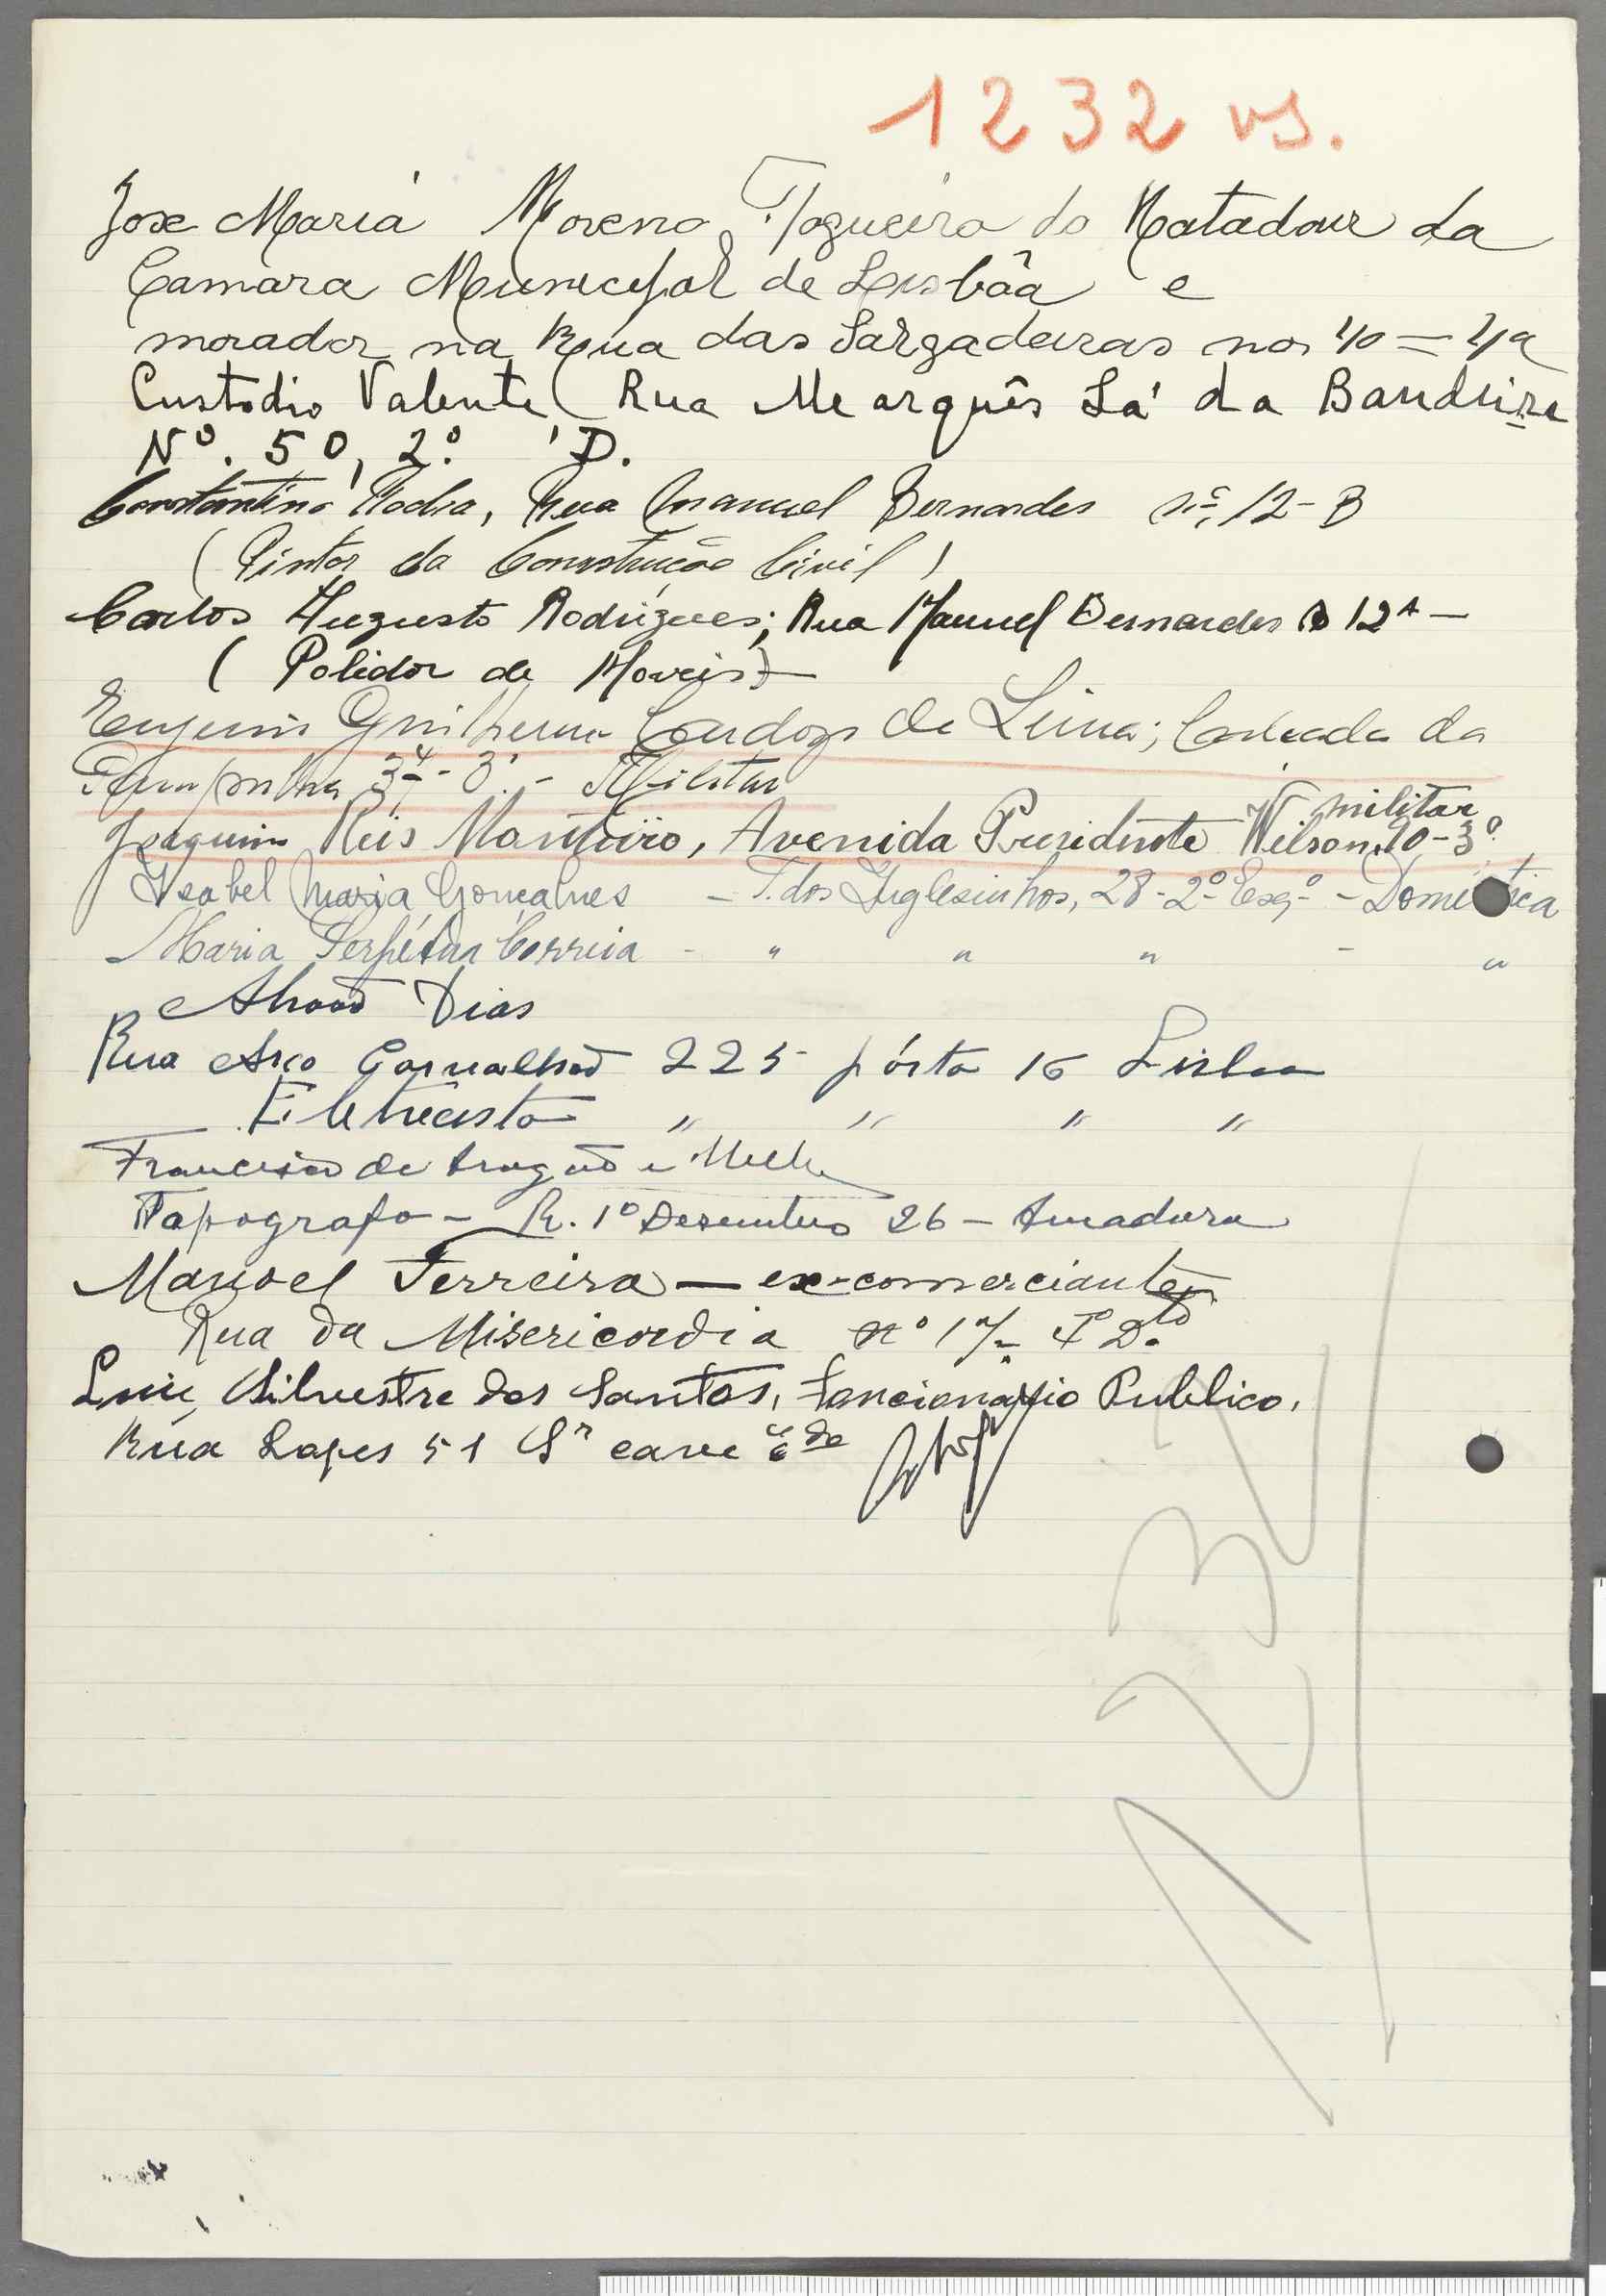 1232 vs.
Jose Maria Moreno, Fogueiro do Matadour da
Camara Municipal de Lisbôa e
morador na Rua das Salgadeiras no 40 = 4º
Custodio Valente (Rua Marquês Sá da Bandeira
Nº. 50, 2º D.
Constantino Rocha, Rua Manuel Bernardes nº 12-B
(Pintor da Construção Civil)
Carlos Augusto Rodrigues; Rua Manuel Bernardes 12 A -
(Polidor de Moveis)
Eugenio Guilherme Cardozo de Lima; Calçada da
Pampulha 34 - 3º. - Militar
Joaquim Reis Monteiro, Avenida Presidente Wilson, 90-3º militar
Isabel Maria Gonçalves - T. dos Inglesinhos, 28-2º Esq.º - Doméstica
Maria Perpétua Correia - " " " - "
Abraão Dias
Rua Arco Carvalhão 225 pórta 16 Lisboa
Eletricista " " " "
Francisco de Aragão e Mello
Tapografo - R. 1º Dezembro 26 - Amadora
Manoel Ferreira - ex-comerciante
Rua da Misericordia nº 17 - 4º D.to
Luiz Silvestre dos Santos, Foncionario Publico,
Rua Lapes 51 cave
1232